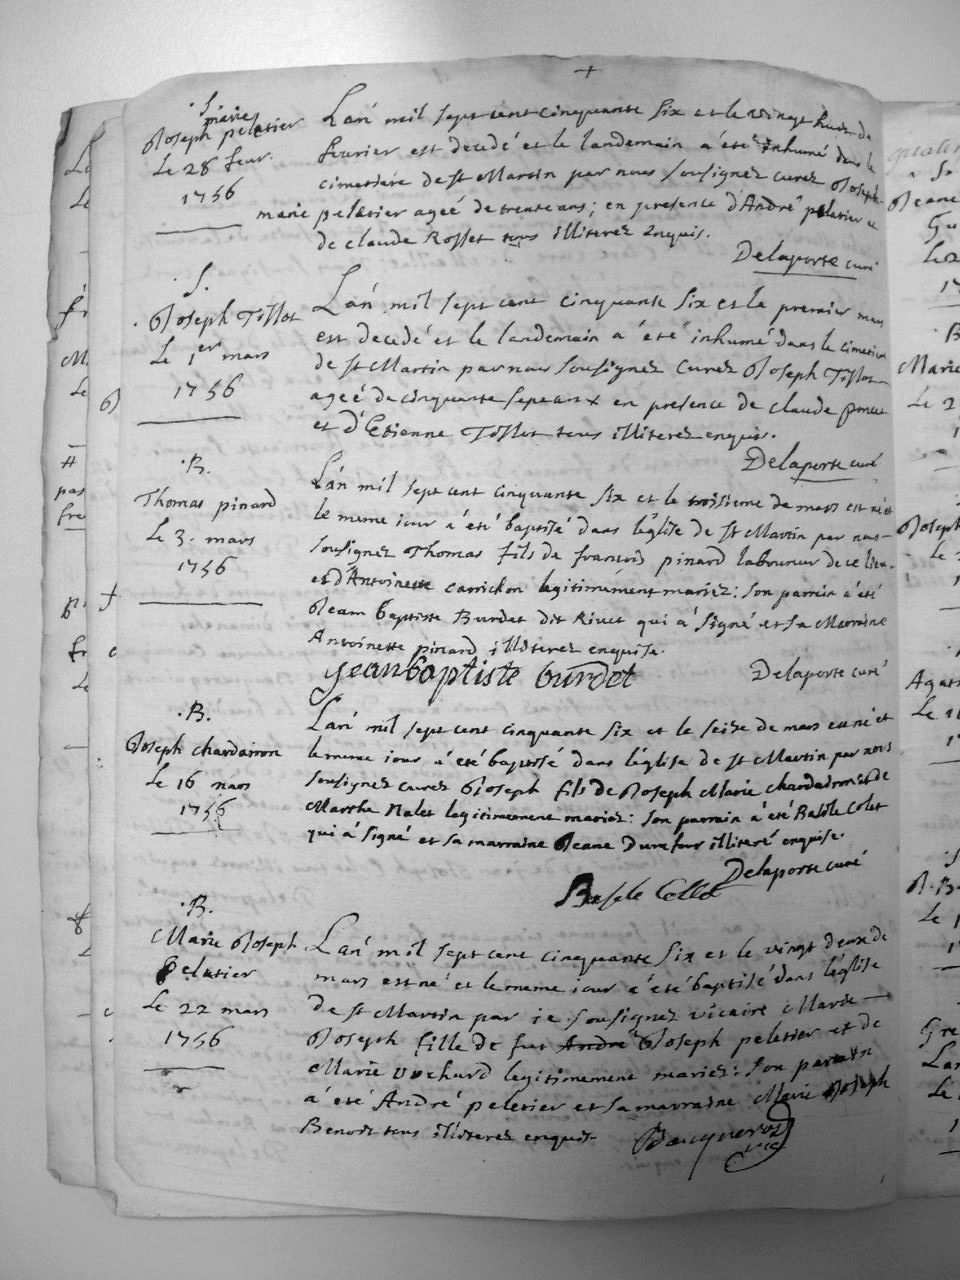 +
.S.
marie
Joseph peletier
Le 28 feur.
1756
L'an mil sept cent cinquante six et le vingt huit de
feurier est decedé et le landemain a été inhumé dans le
cimetiére de st Martin par nous soussignez curez Joseph
marie peletier ageé de trente ans; en presence d'André peletier et
de claude Rosset tous illiterez enquis.
Delaporte curé
.S.
Joseph Tissot
Le 1er mars
1756
L'an mil sept cent cinquante six et le premier mars
est decedé et le landemain a été inhumé dans le cimetiere
de st Martin par nous soussignez curez Joseph Tissot
ageé de cinquante sept ans en presence de claude
et d'Etienne Tissot tous illiterez enquis.
Delaporte curé
.B.
Thomas pinard
Le 3. mars
1756
L'an mil sept cent cinquante six et le troisieme de mars est né et
le meme iour a été baptisé dans l'église de st Martin par nous
soussignez Thomas fils de francois pinard laboureur de ce lieu
et d'Antoinette carrichon legitimement mariez: son parrain a été
Jean baptiste Burdet dit Rivet qui a signé et sa marraine
Antoinette pinard illiterez enquise.
jean baptiste burdet
Delaporte curé
.B.
Joseph chardairon
Le 16 mars
1756
L'an mil sept cent cinquante six et le seize de mars est né et
le meme iour a été baptisé dans l'église de st Martin par nous
soussignez curez Joseph fils de Joseph Marie chardairon et de
Marthe Nalet legitimement mariez: son parrain a été Basile Colet
qui a signé et sa marraine Jeane Dutour illiteré enquise.
Delaporte curé
Basile Collet
.B.
Marie Joseph
Peletier
Le 22 mars
1756
L'an mil sept cent cinquante six et le vingt deux de
mars est né et le meme iour a été baptisé dans l'église
de st Martin par ie soussignez vicaire Marie
Joseph fille de fut André Joseph peletier et de
Marie legitimement mariez: son parrain
a été André peletier et sa marraine Marie Joseph
Benoit tous illiterez enquis.
vic